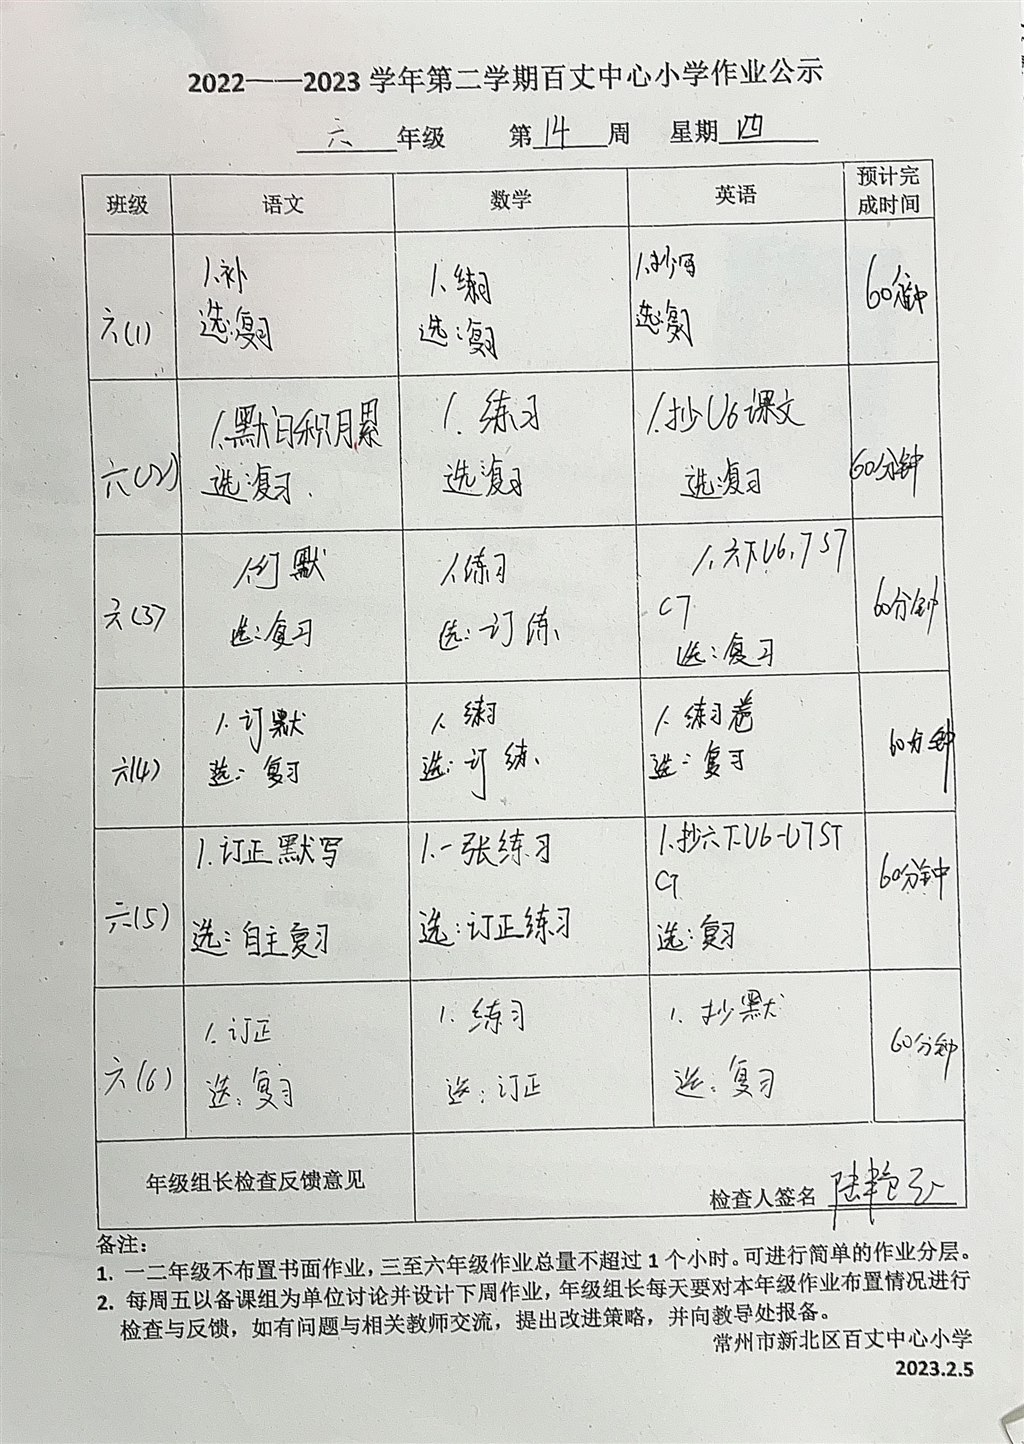 2022——2023 学年第二学期百丈中心小学作业公示
六 年级 第 14 周 星期 四
班级 语文 数学 英语 预计完成时间
六(1)
1.补
选:复习
1.练习
选:复习
1.抄写
选:复习
60分钟
六(2)
1.默日积月累
选:复习.
1. 练习
选:复习
1.抄U6课文
选:复习
60分钟
六(3)
1.订默
选:复习
1.练习
选:订练、
1.六下U6、7 ST
CT
选:复习
60分钟
六(4)
1.订默
选:复习
1.练习
选:订练、
1.练习卷
选:复习
60分钟
六(5)
1.订正默写
选:自主复习
1.一张练习
选:订正练习
1.抄六下U6-U7 ST
CT
选:复习
60分钟
六(6)
1.订正
选:复习
1.练习
选:订正
1.抄默
选:复习
60分钟
年级组长检查反馈意见
检查人签名
备注：
1. 一二年级不布置书面作业，三至六年级作业总量不超过 1 个小时。可进行简单的作业分层。
2. 每周五以备课组为单位讨论并设计下周作业，年级组长每天要对本年级作业布置情况进行
检查与反馈，如有问题与相关教师交流，提出改进策略，并向教导处报备。
常州市新北区百丈中心小学
2023.2.5